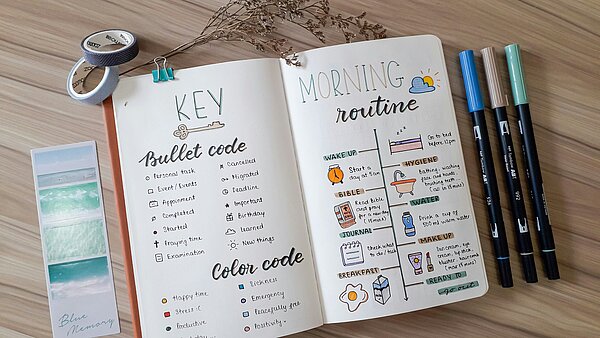 KEY
Bullet code
Personal task
Event / Events
Appointment
Completed
Started
Praying time
Examination
Cancelled
Migrated
Deadline
Important
Birthday
Learned
New things
Color code
Happy time
Stress :c
Exclusive
Sickness
Emergency
Peacefully free
Positivity
MORNING
routine
Go to bed
before 12pm
WAKE UP
Start a
day at 5am
HYGIENE
bathing, washing
face and hands,
brushing teeth
BIBLE
Read Bible
and pray
for a new day
(15 mins)
WATER
Drink a cup of
500 ml warm water
JOURNAL
Check what
to do today
(5 mins)
MAKE UP
Sun cream, eye
cream, lip stick,
blusher, hair comb
(max 15 mins)
BREAKFAST
READY TO
go out
Blue
Memory